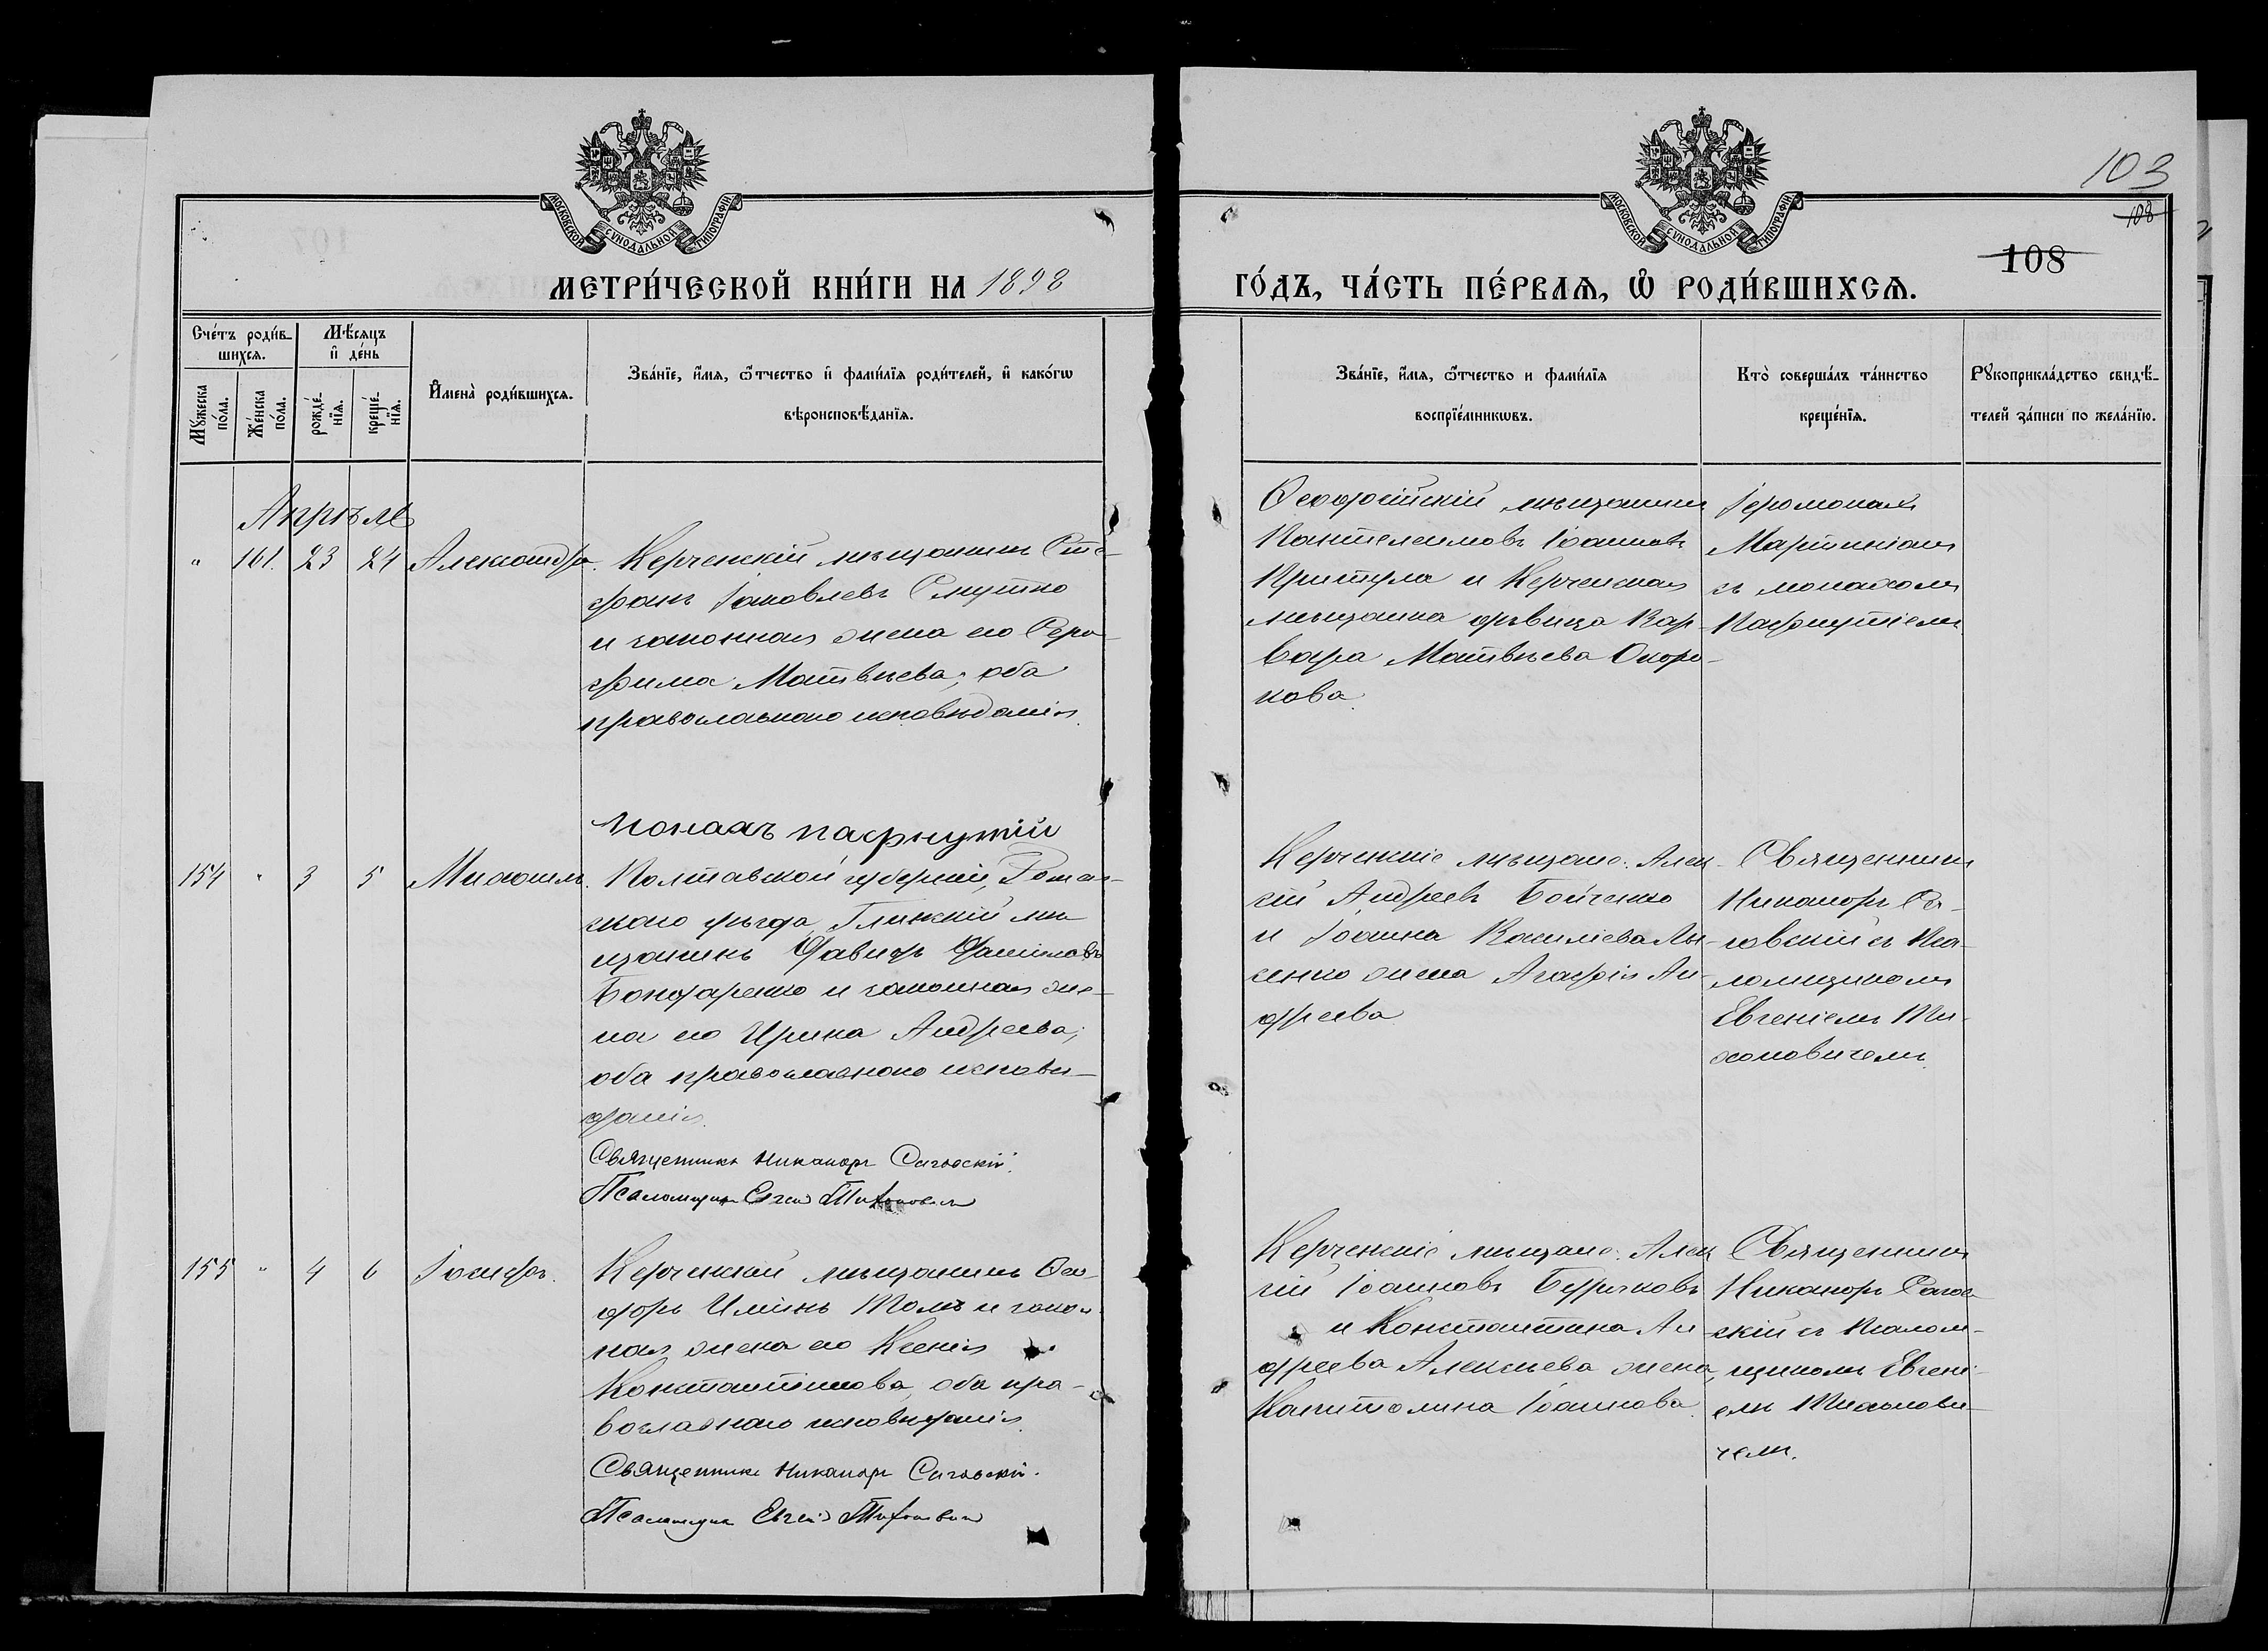 103
108
108
МОСКОВСКОЙ СѴНОДАЛЬНОЙ ТИПОГРАФІИ
МОСКОВСКОЙ СѴНОДАЛЬНОЙ ТИПОГРАФІИ
МЕТРИ́ЧЕСКОЙ КНИ́ГИ НА 1898
ГО́ДЪ, ЧА́СТЬ ПЕ́РВАѦ, Ѡ҆ РОДИ́ВШИХСѦ.
Сче́тъ роди́в-
шихсѧ.
Мꙋжеска по́ла.
Же́нска по́ла.
Мѣ́сѧцъ
и҆ де́нь
рожде́-
нїѧ.
креще́-
нїѧ.
И҆мена̀ роди́вшихсѧ.
Зва́нїе, и҆́мѧ, ѻ҆́тчество и҆ фами́лїѧ роди́телей, и҆ како́гѡ
вѣроисповѣ́данїѧ.
Зва́нїе, и҆́мѧ, ѻ҆́тчество и фами́лїѧ
воспрїе́мникѡвъ.
Кто̀ соверша́лъ та́инство
креще́нїѧ.
Рꙋкоприкла́дство свидѣ́-
телей за́писи по жела́нїю.
Апрѣль
" 161. 23 24 Александра.
Керченскій мѣщанинъ Сте-
фанъ Іаковлевъ Смутко
и законная жена его Сера-
фима Матвѣева; оба
православнаго исповѣданія.
Монахъ Пафнутій
Ѳеодосійскій мѣщанинъ
Пантелеимовъ Іоанновъ
Притула и Керченская
мѣщанка дѣвица Вар-
вара Матвѣева Окоро-
кова.
Іеромонахъ
Мартиніанъ
съ монахомъ
Пафнутіемъ
154 " 3 5 Михаилъ.
Полтавской губерніи, Ромен-
скаго уѣзда, Глинскій мѣ-
щанинъ Давидъ
Бондаренко и законная же-
на его Ирина Андреева;
оба православнаго исповѣ-
данія.
Священникъ Никаноръ Саговскій.
Псаломщикъ Евгеній Тихоновичъ
Керченскіе мѣщане: Алек-
сій Андреевъ Бойченко
и Іоанна Василіева Лы-
сенко жена Агафія Ан-
дреева
Священникъ
Никаноръ Са-
говскій съ Пса-
ломщикомъ
Евгеніемъ Ти-
хоновичемъ.
155 " 4 6 Іосифъ.
Керченскій мѣщанинъ Ѳео-
доръ Ильинъ и закон-
ная жена его Ксенія
Константинова, оба пра-
вославнаго исповѣданія.
Священникъ Никаноръ Саговскій.
Псаломщикъ Евгеній Тихоновичъ
Керченскіе мѣщане: Алек
сій Іоанновъ Бедряковъ
и Константина Ан-
дреева Алексѣева жена,
Капитолина Іоаннова.
Священникъ
Никаноръ Сагов-
скій съ Псалом-
щикомъ Евгені-
емъ Тихонови-
чемъ.